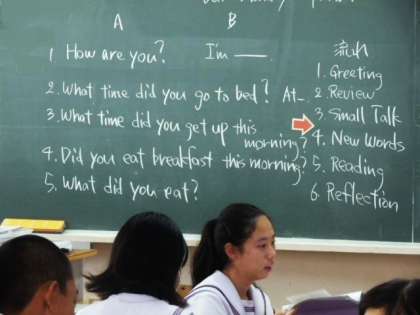 A B
1 How are you? I'm ___.
2. What time did you go to bed? At_
3. What time did you get up this
morning?
4. Did you eat breakfast this morning?
5. What did you eat?
流れ
1. Greeting
2 Review
3. Small Talk
4. New Words
5. Reading
6. Reflection